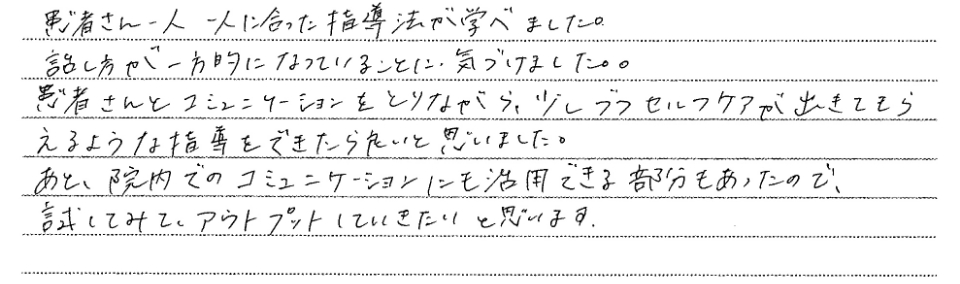 患者さん一人一人に合った指導法が学べました。
話し方が一方的になっていることに、気づけました。。
患者さんとコミュニケーションをとりながら、少しづつセルフケアが出きてもら
えるような指導をできたら良いと思いました。
あと、院内でのコミュニケーションにも活用できる部分もあったので、
試してみて、アウトプットしていきたいと思います。